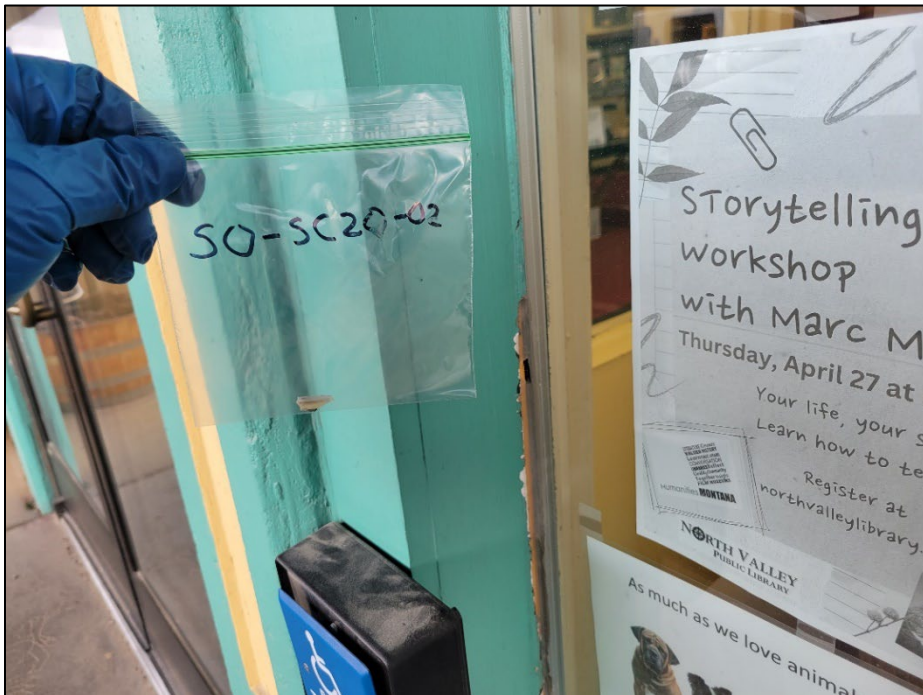 SO-SC20-02
STorytelling
workshop
with Marc M
Thursday, April 27 at
Your life, your s
Learn how to te
Register at
northvalleylibrary.
Humanities MONTANA
NORTH VALLEY
PUBLIC LIBRARY
As much as we love anima